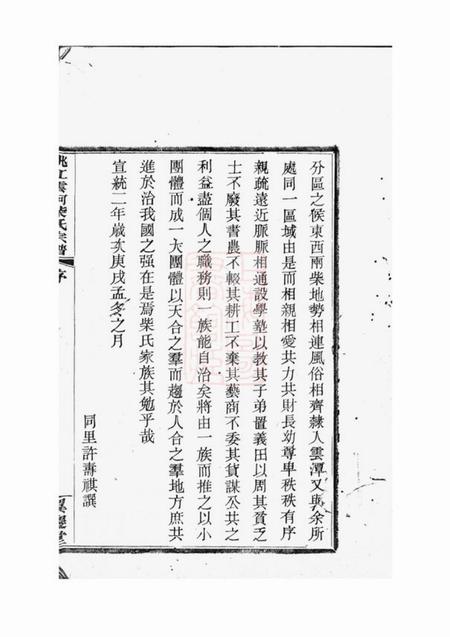 分區之候東西兩柴地勢相連風俗相齊隸人雲潭又與余所
處同一區域由是而相親相愛共力共財長幼尊卑秩秩有序
親疏遠近脈脈相通設學塾以教其子弟置義田以周其貧乏
士不廢其書農不輟其耕工不棄其藝商不委其貨謀公共之
利益盡個人之職務則一族能自治矣將由一族而推之以小
團體而成一大團體以天合之羣而趨於人合之羣地方庶共
進於治我國之强在是焉柴氏家族其勉乎哉
宣統二年歲次庚戌孟冬之月
同里許壽祺譔
柴氏宗譜
序